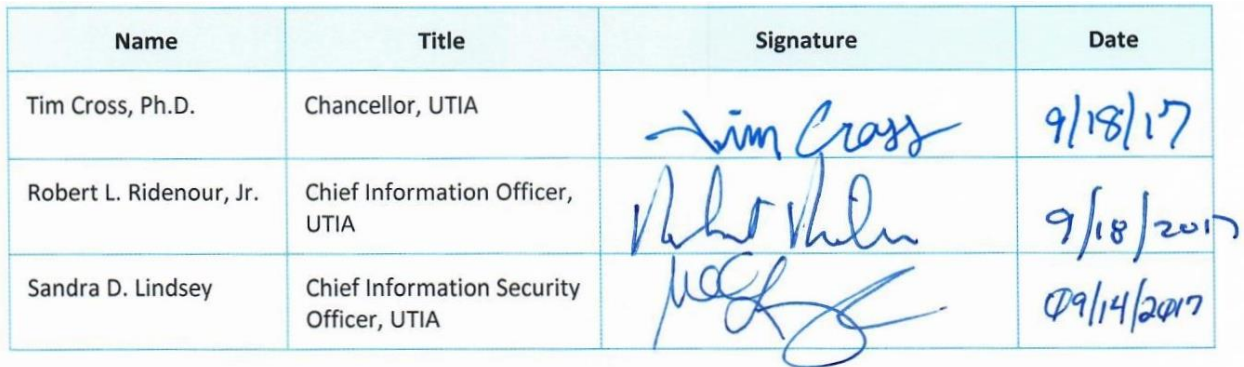 Name Title Signature Date
Tim Cross, Ph.D. Chancellor, UTIA Tim Cross 9/18/17
Robert L. Ridenour, Jr. Chief Information Officer,
UTIA 9/18/2017
Sandra D. Lindsey Chief Information Security
Officer, UTIA 09/14/2017